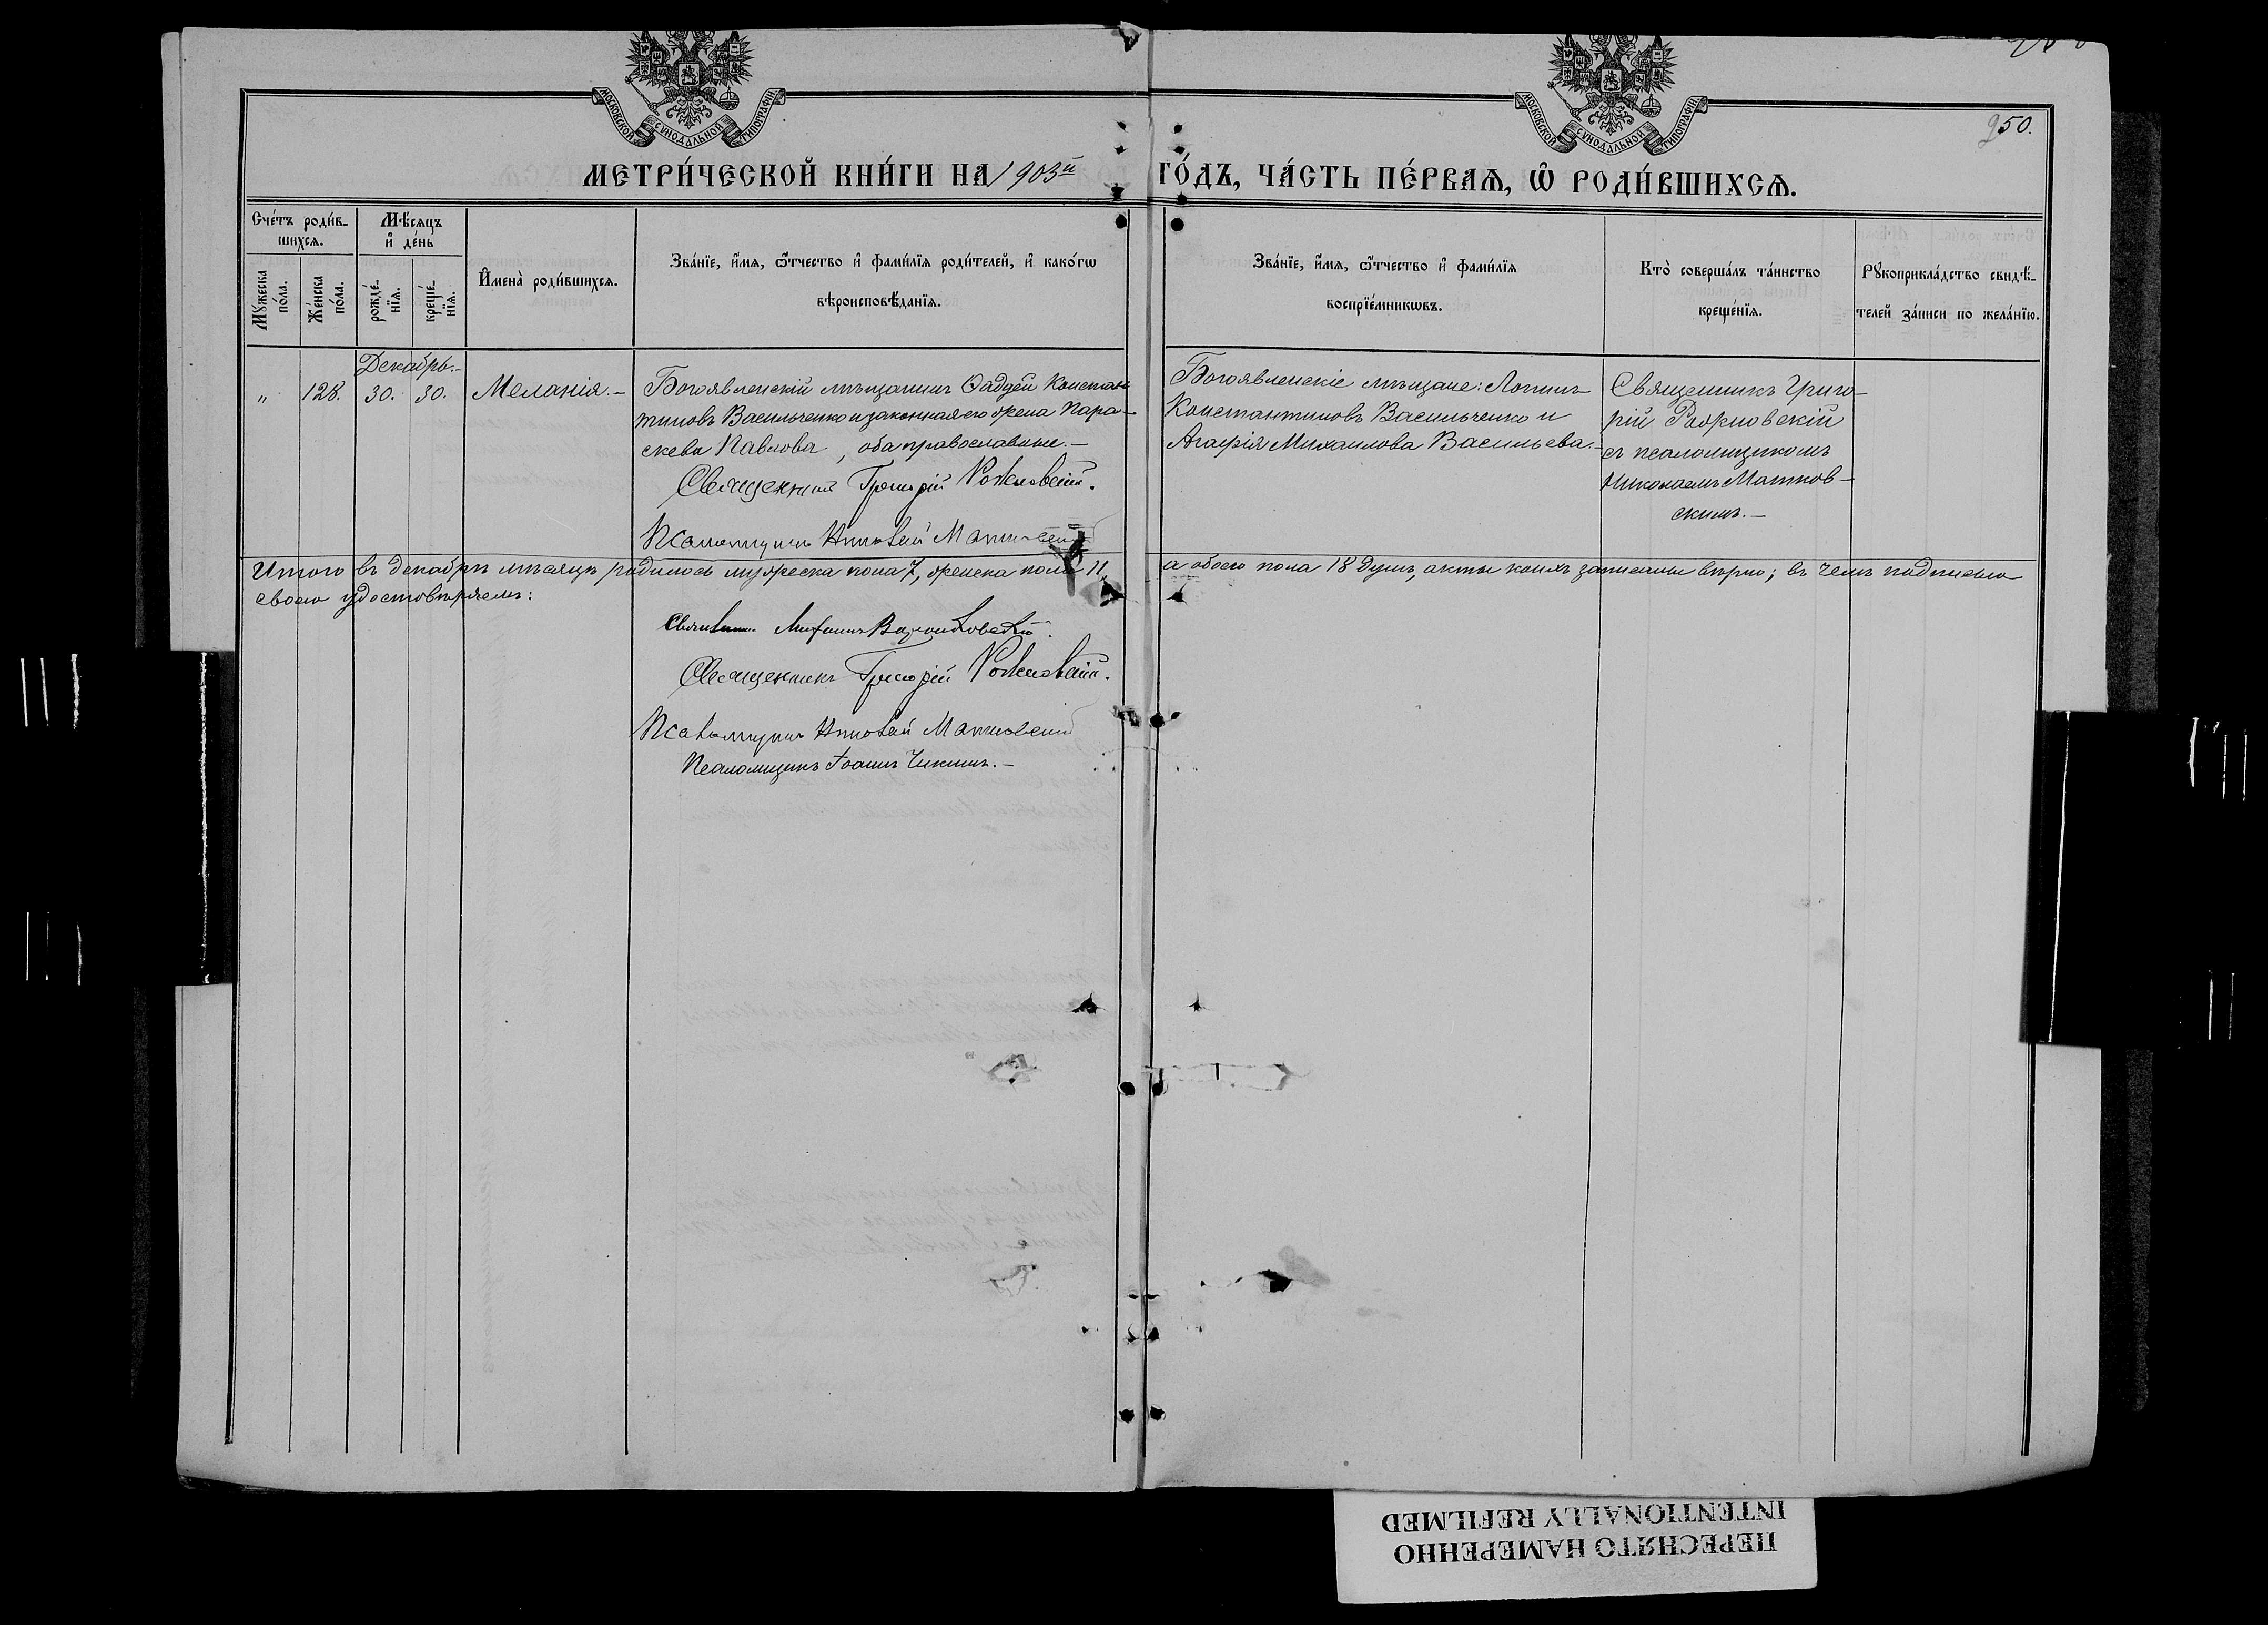 МОСКОВСКОЙ СѴНОДАЛЬНОЙ ТИПОГРАФІИ
МОСКОВСКОЙ СѴНОДАЛЬНОЙ ТИПОГРАФІИ
950.
МЕТРИ́ЧЕСКОЙ КНИ́ГИ НА 1903й ГО́ДЪ, ЧА́СТЬ ПЕ́РВАѦ, Ѡ҆ РОДИ́ВШИХСѦ.
Сче́тъ роди́в-
шихсѧ.
Мѣ́сяцъ
и҆ де́нь
Мꙋ́жеска
по́ла.
Же́нска
по́ла.
рожде́-
нїѧ.
креще́-
нїѧ.
И҆мена̀ роди́вшихсѧ.
Зва́нїе, и҆́мѧ, ѻ҆́тчество и҆ фами́лїѧ роди́телей, и҆ како́гѡ
вѣроисповѣ́данїѧ.
Зва́нїе, и҆́мѧ, ѻ҆́тчество и҆ фами́лїѧ
воспрїе́мникѡвъ.
Кто̀ соверша́лъ та́инство
креще́нїѧ.
Рꙋкоприкла́дство свидѣ́-
телей за́писи по жела́нїю.
Декабрь.-
„ 128. 30. 30. Меланія.-
Богоявленскій мѣщанинъ Фаддей Констан-
тиновъ Васильченко и законная его жена Пара-
скева Павлова, оба православные.-
Священникъ Григорій Рожновскій.
Псаломщикъ Николай Матковскій
Богоявленскіе мѣщане: Логинъ
Константиновъ Васильченко и
Агафія Михаилова Васильева.-
Священникъ Григо-
рій Рожновскій
съ псаломщикомъ
Николаемъ Матков-
скимъ.-
Итого въ декабрѣ мѣсяцѣ родилось мужеска пола 7, женска пола 11, а обоего пола 18 душъ, акты коихъ записаны вѣрно; въ чемъ подписью
своею удостовѣряемъ:
Священникъ
Священникъ Григорій Рожновскій.
Псаломщикъ Николай Матковскій
Псаломщикъ Іоаннъ Чикинъ.-
ПЕРЕСНЯТО НАМЕРЕННО
INTENTIONALLY REFILMED